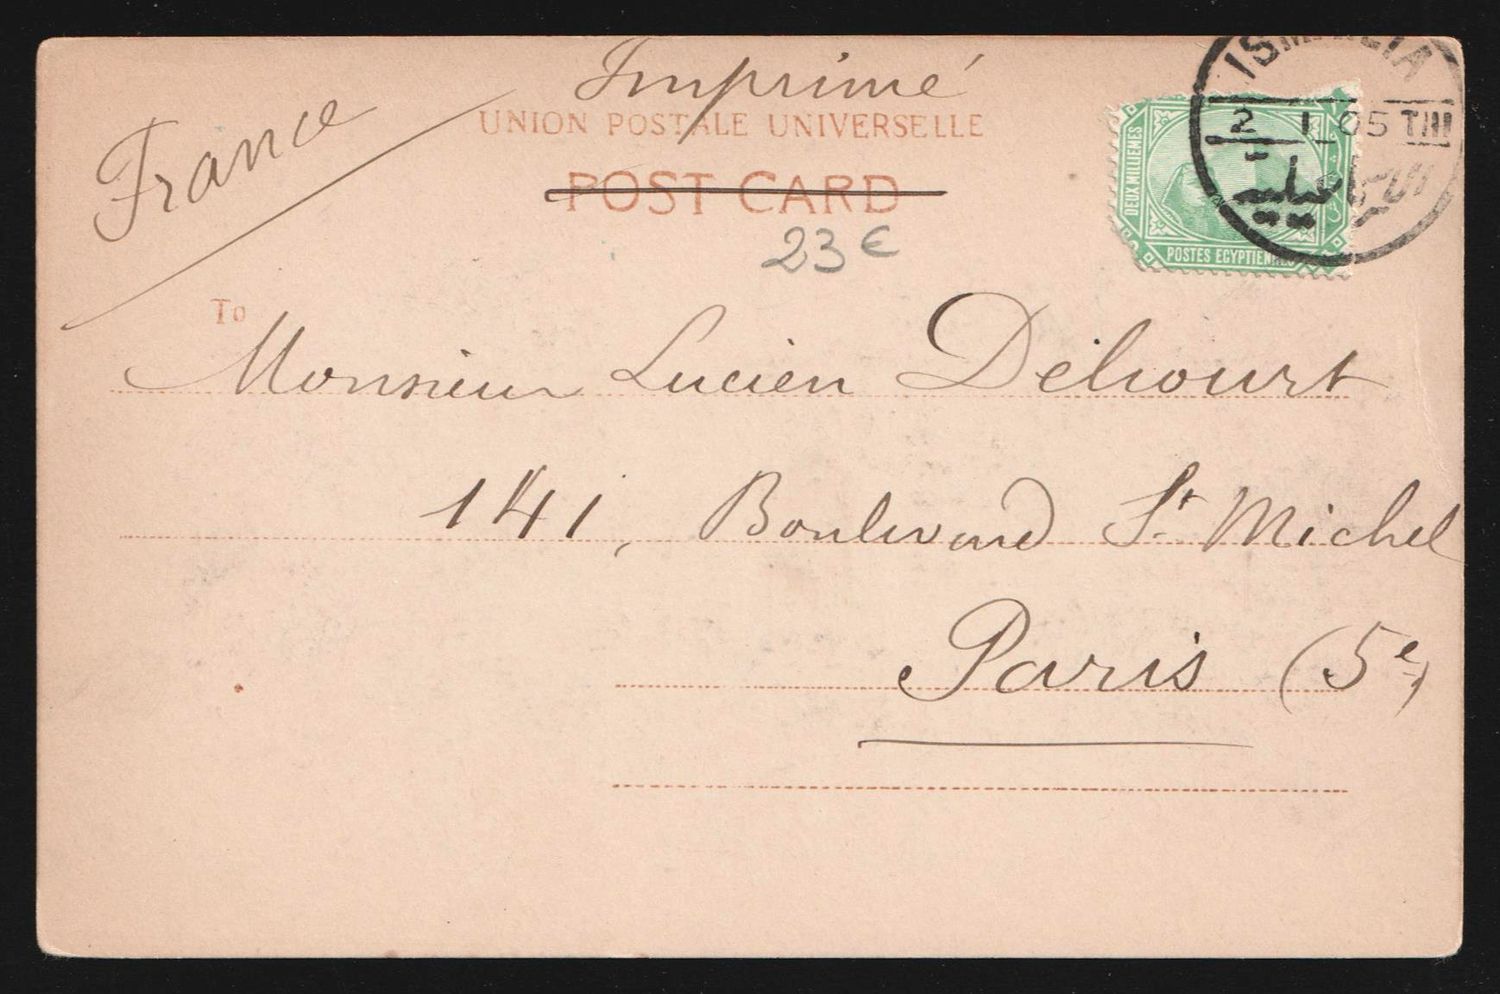 Imprimé
France
UNION POSTALE UNIVERSELLE
POST CARD
23 €
ISMAILIA
2 I 05 TIII
الاسماعيلية
DEUX MILLIEMES
POSTES EGYPTIENNES
To
Monsieur Lucien Delcourt
141, Boulevard St Michel
Paris (5e)